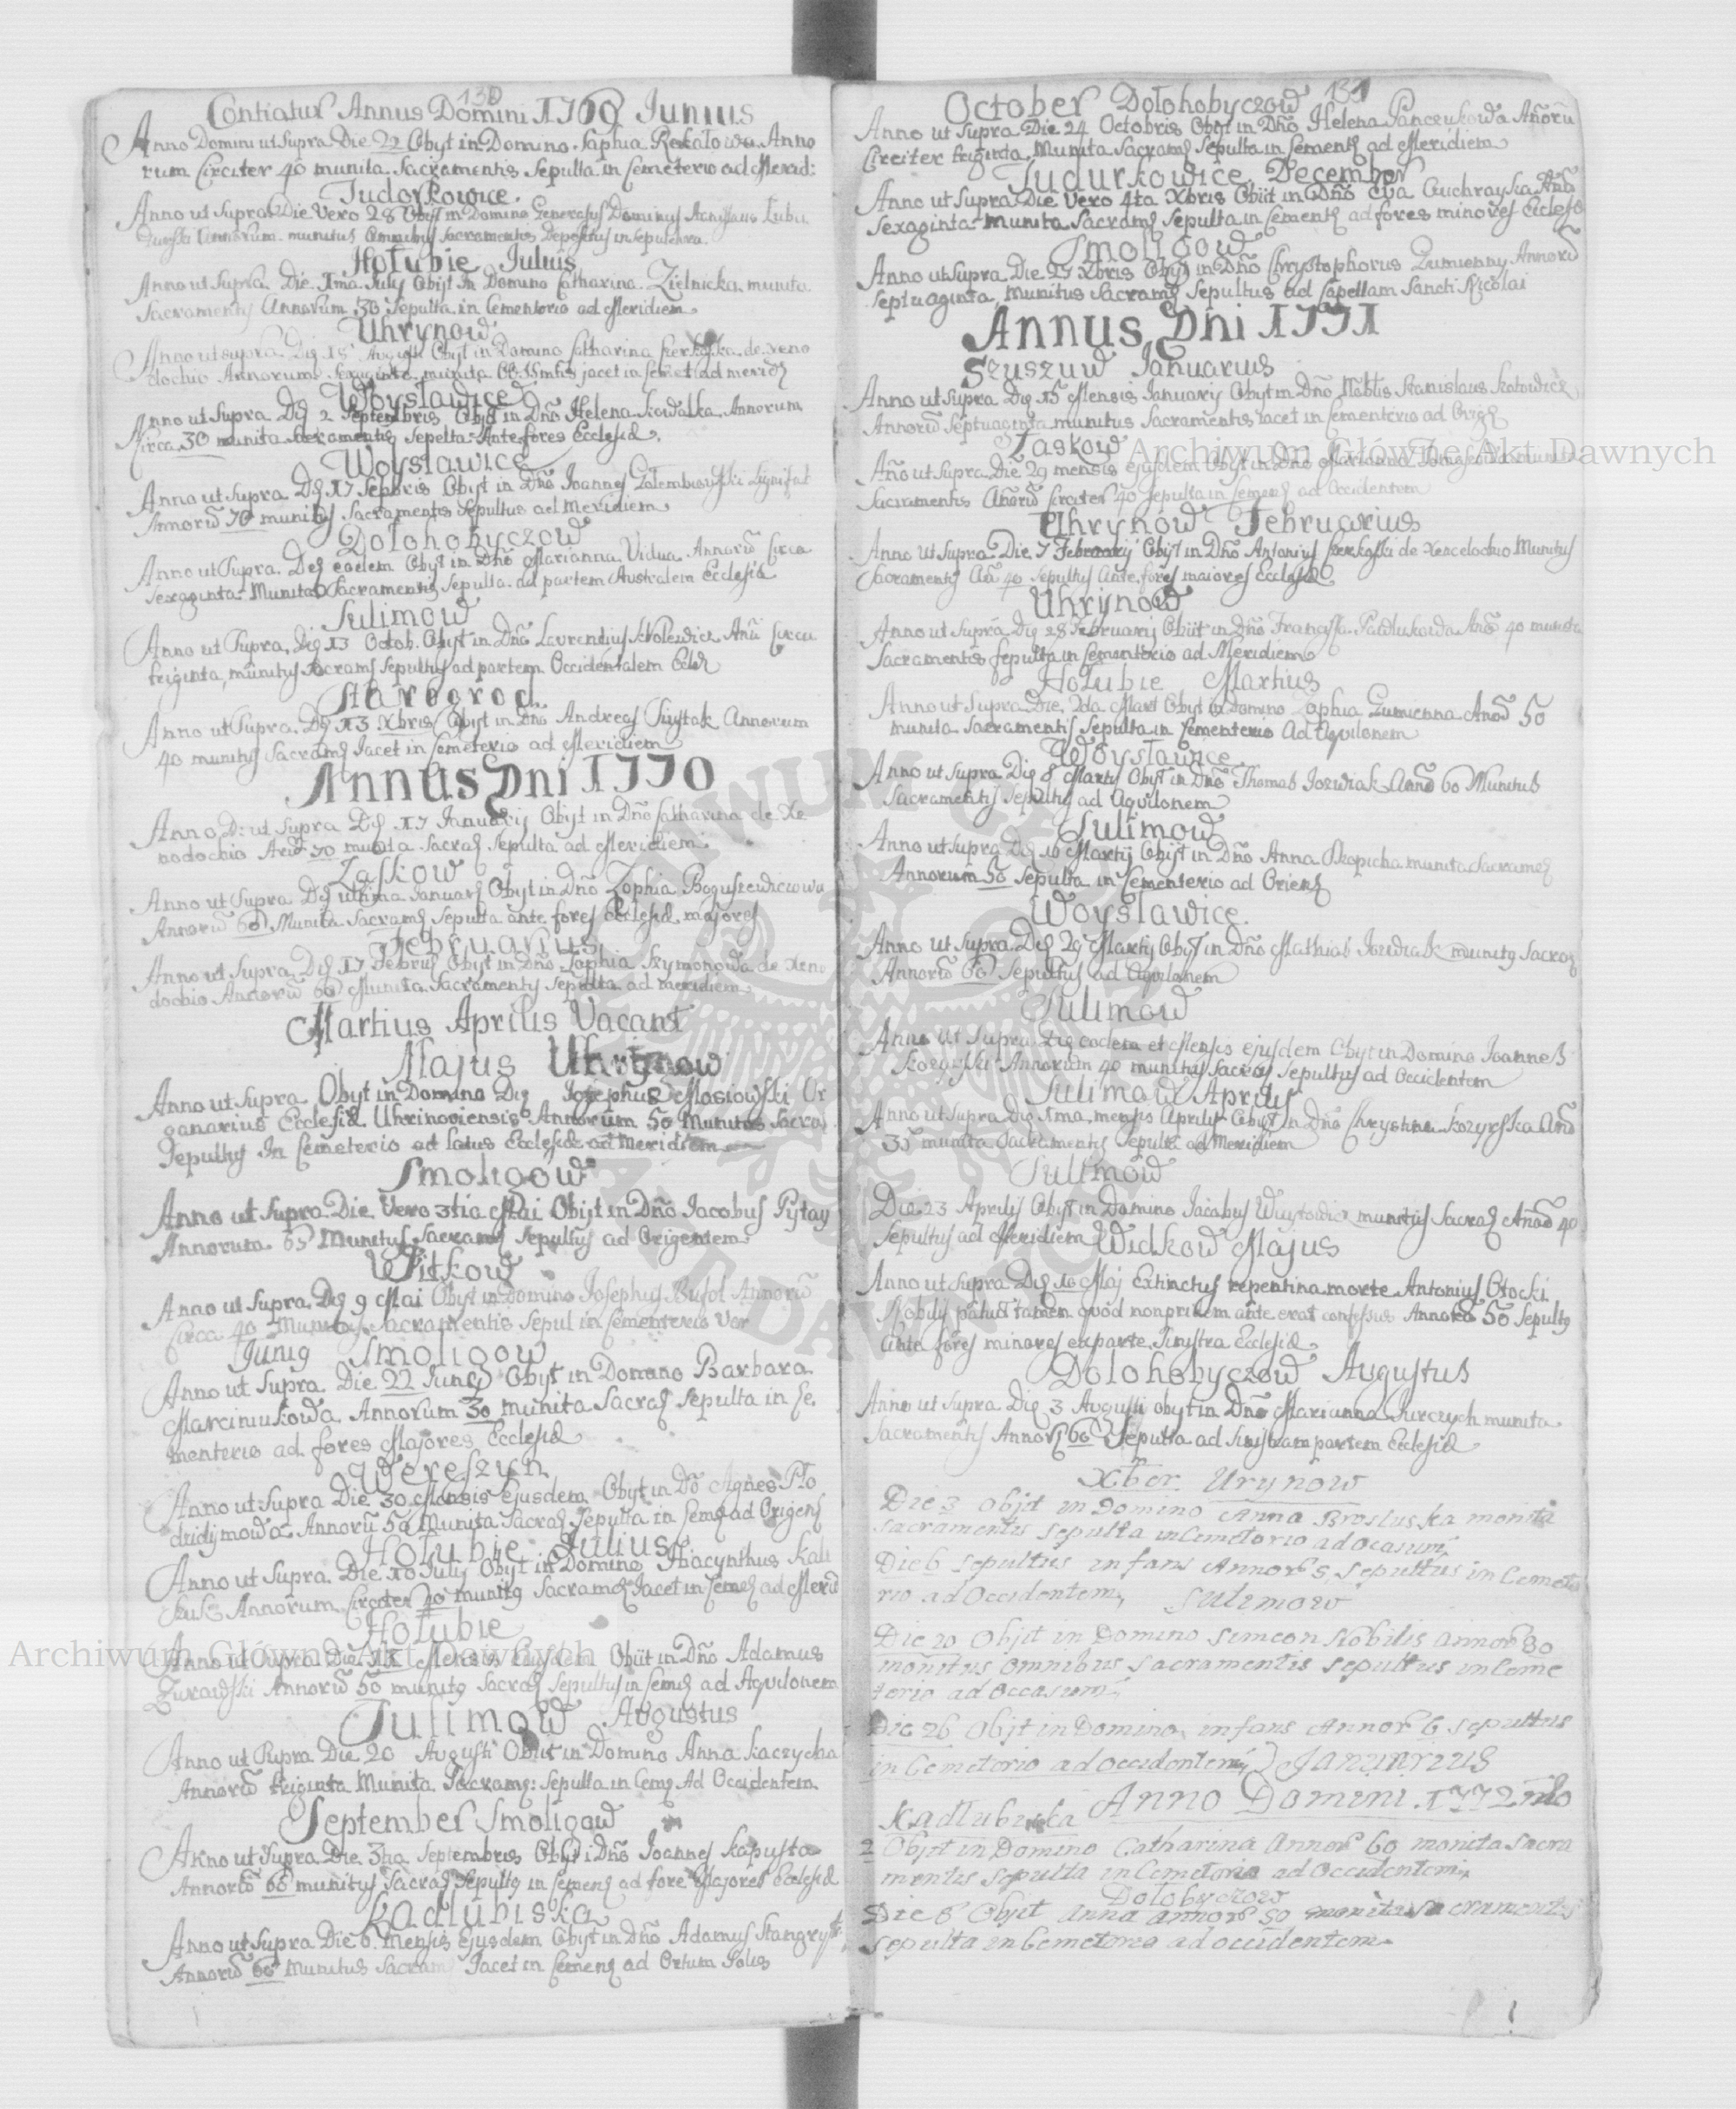 130
Contiatur Annus Domini 1769 Junius
Anno Domini ut Supra Die 22 Obyt in Domino Sophia Rokałowa Anno
rum Circiter 40 munita Sacramentis Sepulta in Cemeterio ad Merid:
Tudorkowice.
Anno ut Supra Die Vero 28 Obijt in Domino Generosus Dominus Stanislaus Lubu
Annorum munitus Omnibus Sacramentis Depositus in Sepulchra.
Hołubie Julius
Anno ut Supra Die 1ma July Obijt In Domino Catharina Zielnicka munita
Sacramentis Annorum 30 Sepulta in Cementorio ad Meridiem
Uhrynow
Anno ut supra Die 15 Augusti Obyt in Domino Catharina de Xeno
dochio Annorum Sexaginta munita jacet in Cemet ad merid
Woyslawice
Anno ut Supra Die 2 Septembris Obyt in Dño Helena Kowalka Annorum
Circa 30 munita Sacramentis Sepelta Ante fores Ecclesiæ.
Woyslawice
Anno ut Supra Die 17 Sepbris Obyt in Dño Joannes Gołembiowski
Annorũ 70 munitus Sacramentis Sepultus ad Meridiem
Dołohobyczow
Anno ut Supra Die eodem Obyt in Dño Marianna Vidua Annorũ Circa
sexaginta Munita Sacramentis Sepulta ad partem Australem Ecclesiæ
Sulimow
Anno ut Supra Die 13 Octob. Obyt in Dño Laurentius Circa
triginta, munitus Sacrams Sepultus ad partem Occidentalem Eccle
Starogrod.
Anno ut Supra Die 13 Xbris Obyt in Dño Andreas Annorum
40 munitus Sacrams Jacet in Cemeterio ad Meridiem
Annus Dni 1770
Anno D: ut Supra Die 17 Januarij Obyt in Dño Catharina de Xe
nodochio Anorũ 30 munita Sacras Sepulta ad Meridiem
Zaskow
Anno ut Supra Die ultima Januar Obyt in Dño Zophia Boguszewiczowa
Annorũ 60 Munita Sacrams Sepulta ante fores Ecclesiæ majores
Februarius
Anno ut Supra Die 17 Februs Obyt in Dño Zophia Szymonowa de Xeno
dochio Annorũ 60 Munita Sacramentis Sepulta ad meridiem
Martius Aprilis Vacant
Majus Uhrynow
Anno ut supra Obyt in Domino Die Josephus Mosiowski Or
ganarius Ecclesiæ Uhrinoviensis Annorum 50 Munitus Sacra
Sepultus In Cemeterio ad latus Ecclesiæ ad Meridiem
Smoligow
Anno ut Supra Die Vero 3tia Mai Obijt in Dño Jacobus Pytay
Annorum 65 Munitus Sacrams Sepultus ad Origentem
Witkow
Anno ut Supra Die 9 Mai Obyt in Domino Josephus Annorũ
Circa 40 Munitus Sacramentis Sepul in Cementerio Var
Junig Smoligow
Anno ut Supra Die 22 Junij Obyt in Domino Barbara
Marciniukowa Annorum 30 munita Sacras Sepulta in Ce
menterio ad fores Majores Ecclesiæ
Wereszyn
Anno ut Supra Die 30 Mensis Ejusdem Obyt in Dõ Agnes Pło
dzidymowa Annorũ 50 Munita Sacras Sepulta in Cems ad Origens
Hołubie Julius
Anno ut Supra Die 10 July Obyt in Domino Hiacynthus
Annorum Circiter 40 munitg Sacrams Jacet in Cems ad Merid
Hołubie
Anno ut Supra Die 13 Mensis Ejusdem Obiit in Dño Adamus
Zurawski Annorũ 50 munitg Sacras Sepultus in Cems ad Aqvilonem
Sulimow Augustus
Anno ut Supra Die 20 Augusti Obiit in Domino Anna Kaczycha
Annorũ triginta Munita Sacrams: Sepulta in Ceme Ad Occidentem.
September Smoligow
Anno ut Supra Die 3tia Septembris Obyt i Dño Joannes Kapusta
Annorũ 60 munitus Sacras Sepultg in Cemens ad fores Majores Ecclesiæ
Kadlubiska
Anno ut Supra Die 6 Mensis Ejusdem Obyt in Dño Adamus
Annorũ 60 Munitus Sacram Jacet in Cemens ad Ortum Solis
131
October Dołohobyczow
Anno ut Supra Die 24 Octobris Obyt in Dño Helena Panczukowa Añorũ
Circiter triginta Munita Sacrams Sepulta in Cements ad Meridiem
Tudurkowice December
Anno ut Supra Die Vero 4ta Xbris Obiit in Dño Eva
Sexaginta Munita Sacrams Sepulta in Cements ad fores minores Eccles
Smoligow
Anno ut Supra Die 27 Xbris Obyt in Dño Chrystophorus Gumienny Annorũ
Septuaginta, Munitus Sacrams Sepultus ad Capellam Sancti Nicolai
Annus Dni 1771
Szuszuw Januarius
Anno ut Supra Die 15 Mensis Januarij Obyt in Dño Nobilis Stanislaus
Annorũ Septuaginta munitus Sacramentis Jacet in Cementerio ad Orige
Zaskow
Año ut Supra Die 29 mensis ejusdem Obyt in Dño Marianna
Sacramentis Añorũ Circiter 40 Sepulta in Cemens ad Occidentem
Uhrynow Februarius
Anno Ut Supra Die 7 Februarij Obijt in Dño Antonius de Xenodochio Munitus
Sacramentis Añ 40 Sepultus Ante fores maiores Ecclesiæ
Uhrynow
Anno ut Supra Die 28 Februarij Obiit in Dño 40 munita
Sacramentis Sepulta in Cementerio ad Meridiem
Hołubie Martius
Anno ut Supra Die 2da Mart Obyt in Domino Zophia Gumienna Anorũ 50
munita Sacramentis Sepulta in Cementerio Ad Aqvilonem
Woyslawice
Anno ut Supra Die 8 Martij Obyt in Dño Thomas Jozwiak Anorũ 60 Munitus
Sacramentis Sepultus ad Aqvilonem
Sulimow
Anno ut Supra Die 10 Martij Obijt in Dño Anna Skopicha munita Sacrames
Annorum 50 Sepulta in Cementerio ad Oriens
Woyslawice.
Anno ut Supra Die 29 Martij Obyt in Dño Mathias Jozwiak munitg Sacras
Annorũ 60 Sepultus ad Aqvilonem
Sulimow
Anno ut Supra Die eodem et Mensis ejusdem Obyt in Domino Joannes
Kozyrski Annorum 40 munitus Sacras Sepultus ad Occidentem
Sulimow Aprilis
Anno ut Supra Die 1ma mensis Aprilis Obyt in Dño Chrystina Kozyrska Anõ
35 munita Sacramentis Sepulta ad Meridiem
Sulimow
Die 23 Aprilis Obyt in Domino Jacobus munitus Sacras Anorũ 40
Sepultus ad Meridiem Widkow Majus
Anno ut Supra Die 10 Maj Extinctus repentina morte Antonius Otocki
Nobilis patuit tamen quod non pridem ante erat confesus Annorũ 50 Sepultg
Ante fores minores ex parte Sinistra Ecclesiæ
Dołohobyczow Augustus
Anno ut Supra Die 3 Augusti obyt in Dño Marianna Jurczych munita
Sacramentis Annors 60 Sepulta ad Sinistram partem Ecclesiæ
Xber. Urynow
Die 3 Objit in Domino Anna Brosluska monita
sacramentis sepulta in Cemetorio ad Ocasum
Die 6 sepultus infans Annor 5 sepultus in Cemeto
rio ad Occidentem, Sulimow
Die 20 Objit in Domino Simeon Nobilis annor 80
monitus omnibus sacramentis sepultus in Ceme
torio ad Occasum
Die 26 Objt in Domino infans Annor 6 sepultus
in Cemetorio ad occidentem Januarius
Kadłubiska Anno Domini 1772
2 Objit in Domino Catharina Annor 60 monita sacra
mentis sepulta in Cemetorio ad Occidentem
Dolobyczow
Die 8 Objit Anna annor 50 monita sacramentis
sepulta in Cemetorio ad occidentem
Archiwum Główne Akt Dawnych
Archiwum Główne Akt Dawnych